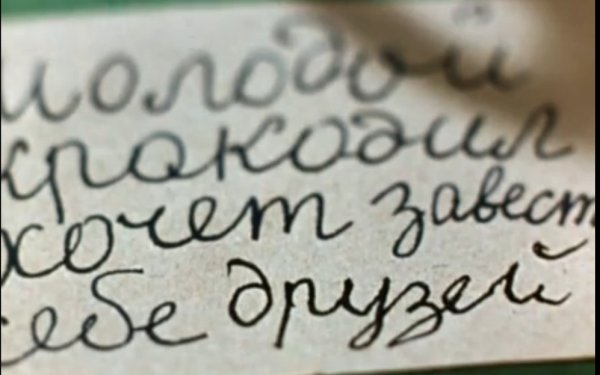 молодой
кракодил
хочет завест
себе друзей